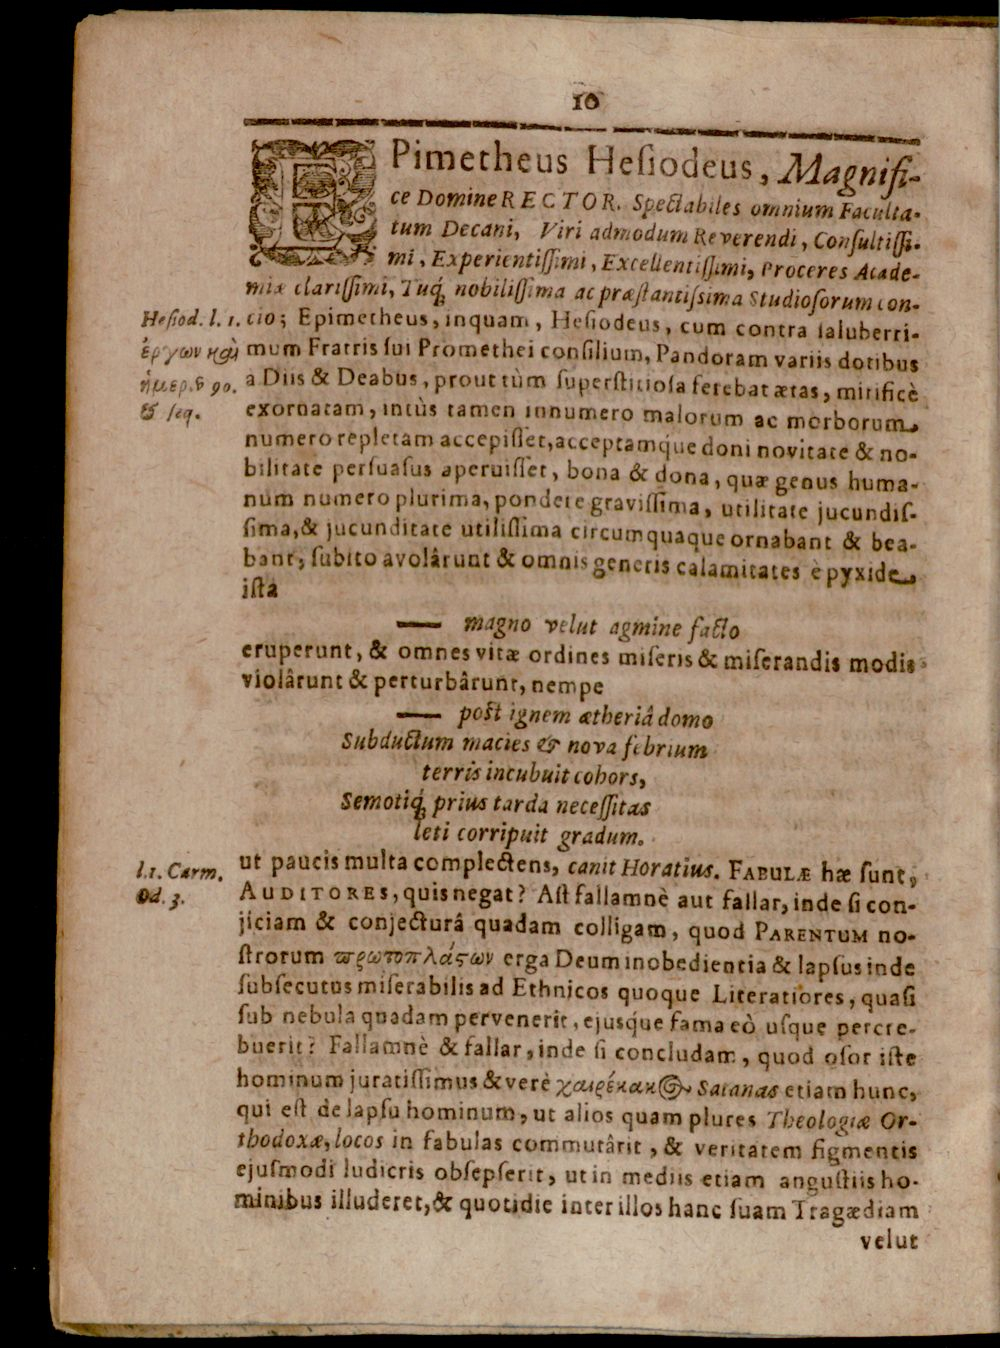 10
EPimetheus Heſiodeus, Magnifi-
ce Domine RECTOR. Spectabiles omnium Faculta-
tum Decani, Viri admodum Reverendi, Conſultiſſi-
mi, Experientiſſimi, Excellentiſſimi, Proceres Acade-
miæ clariſſimi, Tuq́; nobiliſſima ac præſtantiſsima Studioſorum con-
Heſiod. l. 1.
ἔργων καὶ
ἡμερ. v 90.
& ſeq.
cio; Epimetheus, inquam, Heſiodeus, cum contra ſaluberri-
mum Fratris ſui Promethei conſilium, Pandoram variis dotibus
a Diis & Deabus, prout tùm ſuperſtitioſa ferebat ætas, mirificè
exornatam, intùs tamen innumero malorum ac morborum
numero repletam accepiſſet, acceptamq́ue doni novitate & no-
bilitate perſuaſus aperuiſſet, bona & dona, quæ genus huma-
num numero plurima, pondere graviſſima, utilitate jucundiſ-
ſima, & jucunditate utiliſſima circumquaque ornabant & bea-
bant, ſubito avolârunt & omnis generis calamitates è pyxide
iſta
— magno velut agmine facto
eruperunt, & omnes vitæ ordines miſeris & miſerandis modis
violârunt & perturbârunt, nempe
— poſt ignem ætheriâ domo
Subductum macies & nova febrium
terris incubuit cohors,
Semotiq́; prius tarda neceſſitas
leti corripuit gradum.
l. 1. Carm.
Od. 3.
ut paucis multa complectens, canit Horatius. FABULÆ hæ ſunt,
AUDITORES, quis negat? Aſt fallamnè aut fallar, inde ſi con-
jiciam & conjecturâ quadam colligam, quod PARENTUM no-
ſtrorum πρωτοπλάστων erga Deum inobedientia & lapſus inde
ſubſecutus miſerabilis ad Ethnicos quoque Literatiores, quaſi
ſub nebula quadam pervenerit, ejusq́ue fama eò uſque percre-
buerit? Fallamnè & fallar, inde ſi concludam, quod oſor iſte
hominum juratiſſimus & verè χαιρέκακος Satanas etiam hunc,
qui eſt de lapſu hominum, ut alios quam plures Theologiæ Or-
thodoxæ, locos in fabulas commutârit, & veritatem figmentis
ejuſmodi ludicris obſepſerit, ut in mediis etiam anguſtiis ho-
minibus illuderet, & quotidie inter illos hanc ſuam Tragædiam
velut